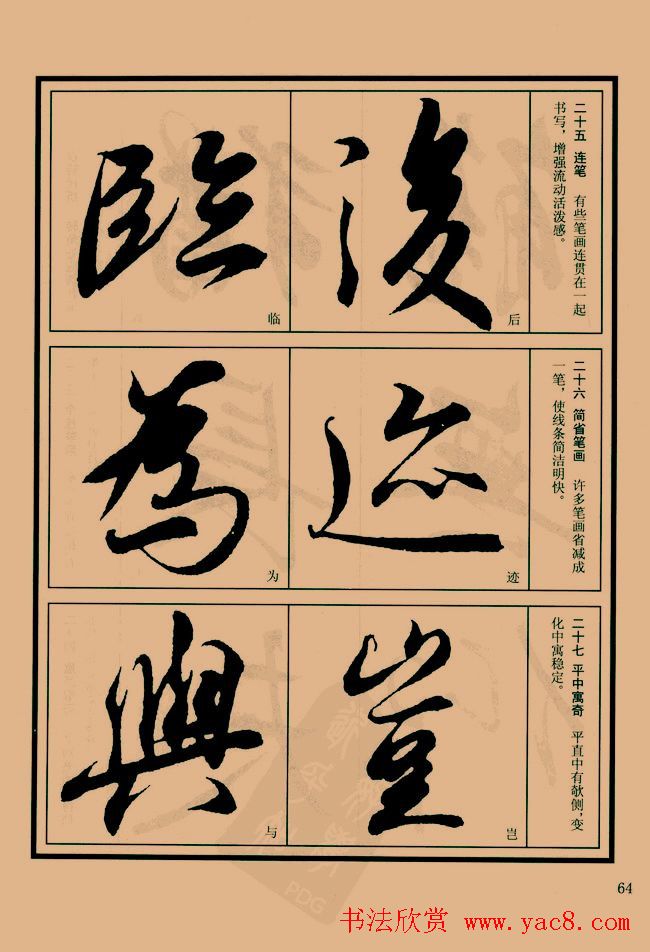 二十五 连笔 有些笔画连贯在一起
书写，增强流动活泼感。
後
后
臨
临
二十六 简省笔画 许多笔画省减成
一笔，使线条简洁明快。
迹
迹
為
为
二十七 平中寓奇 平直中有欹侧，变
化中寓稳定。
豈
岂
與
与
64
书法欣赏 www.yac8.com
PDG